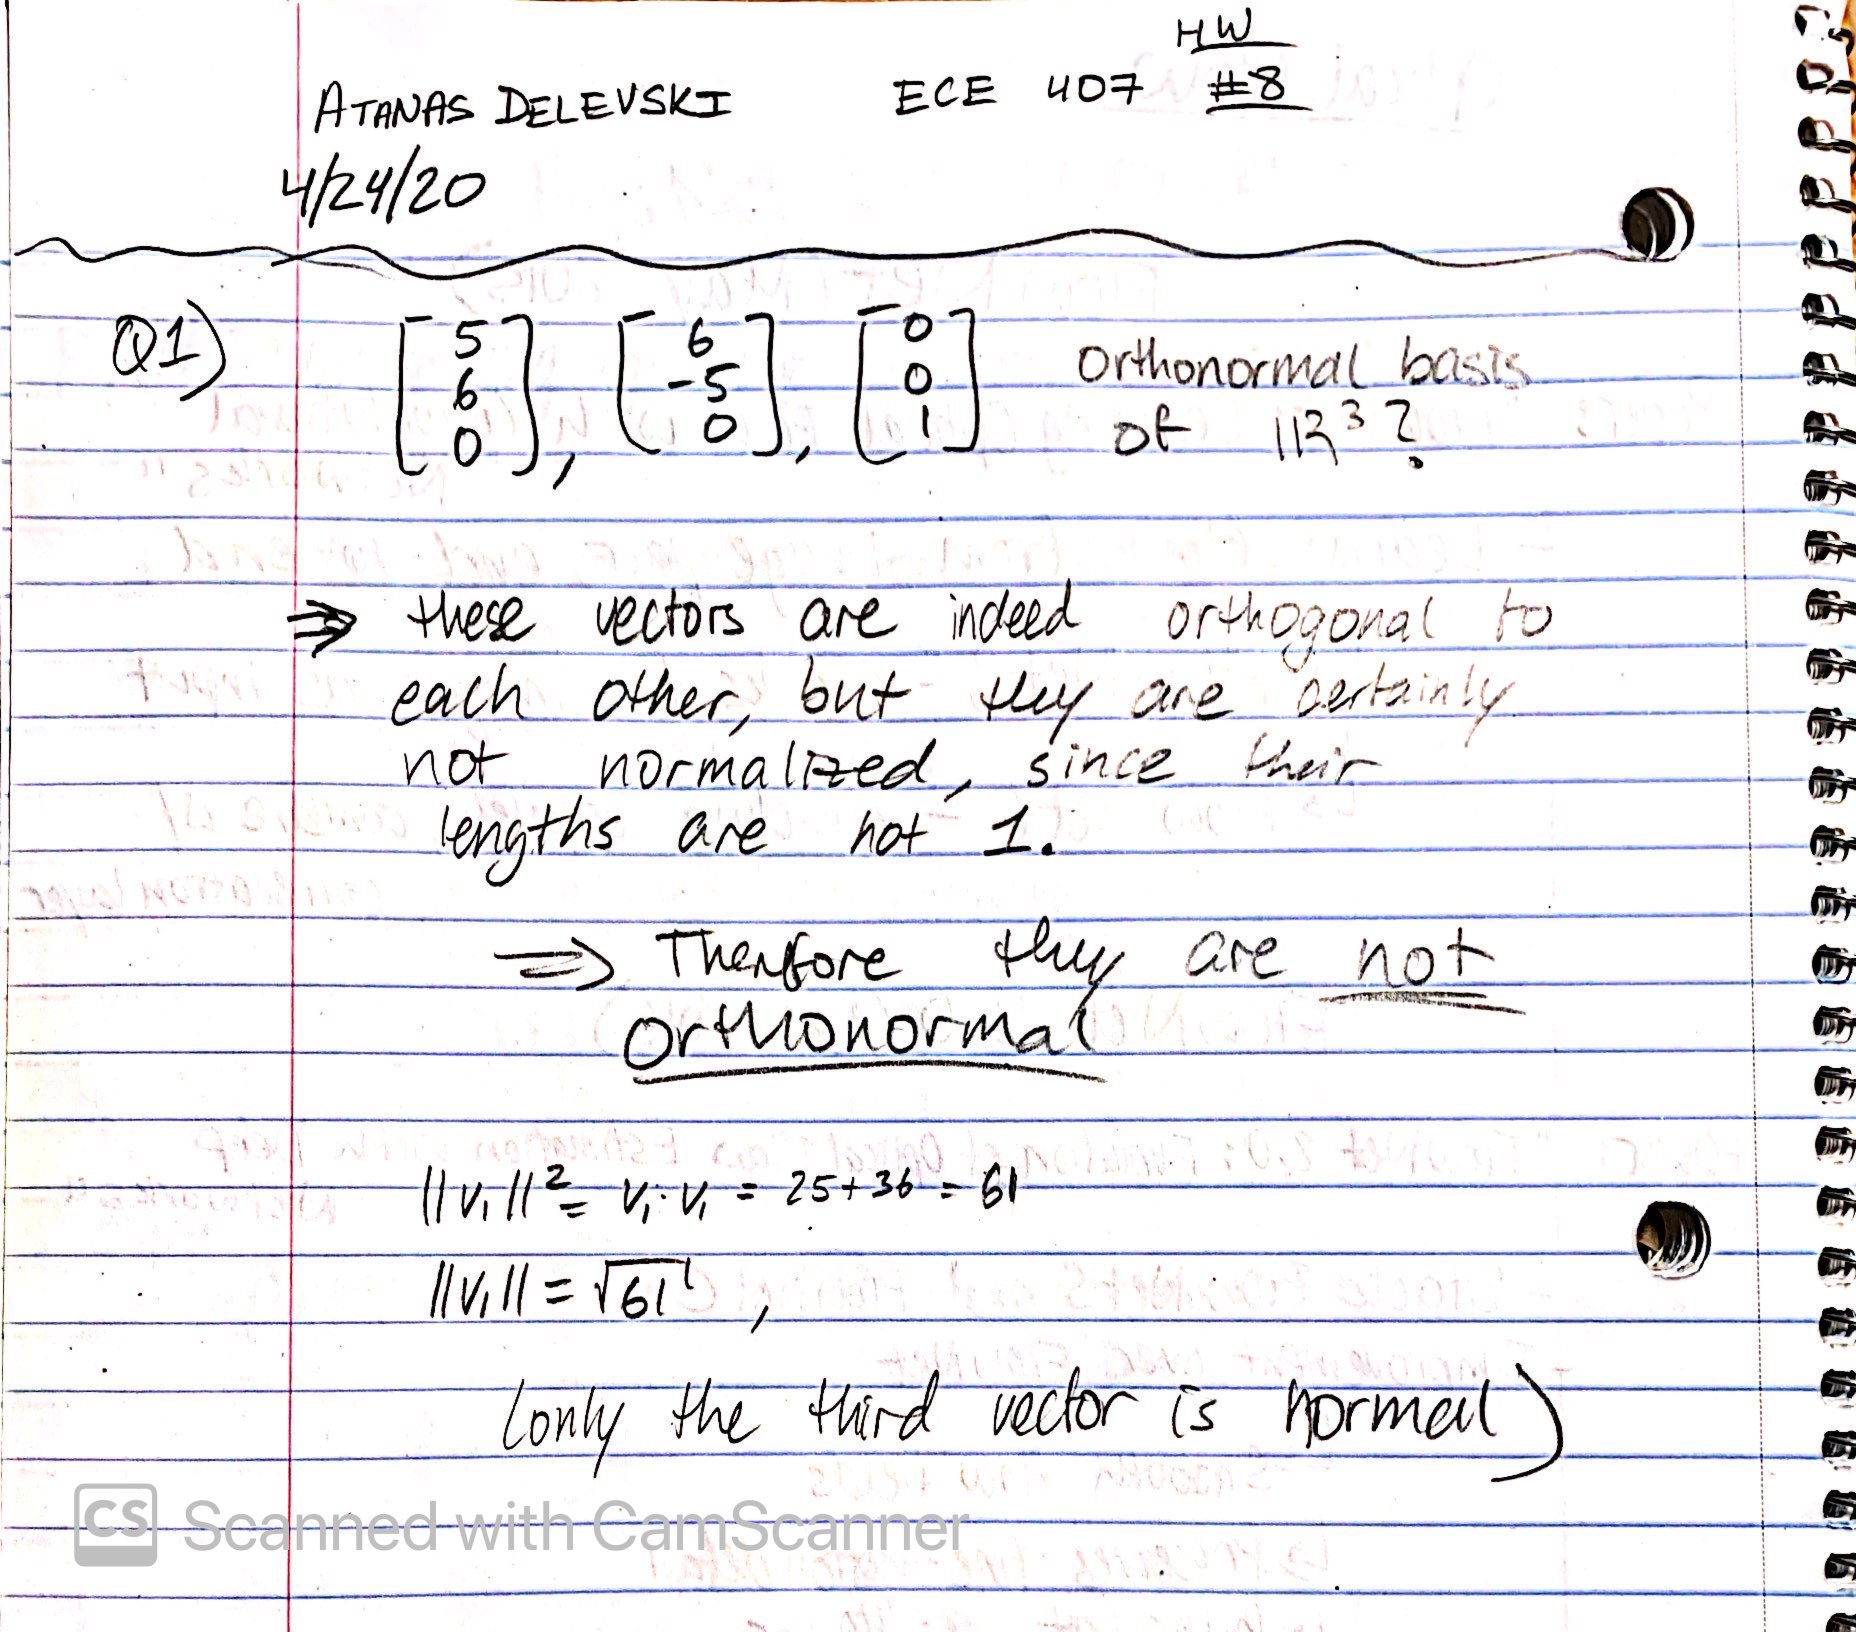 HW
ATANAS DELEVSKI ECE 407 #8
4/24/20
Q1) [5 6 0], [6 -5 0], [0 0 1] orthonormal basis
of ℝ³?
⇒ these vectors are indeed orthogonal to
each other, but they are certainly
not normalized, since their
lengths are not 1.
⇒ Therefore they are not
orthonormal
||v₁||² = v₁·v₁ = 25+36 = 61
||v₁|| = √61,
(only the third vector is normal)
CS Scanned with CamScanner